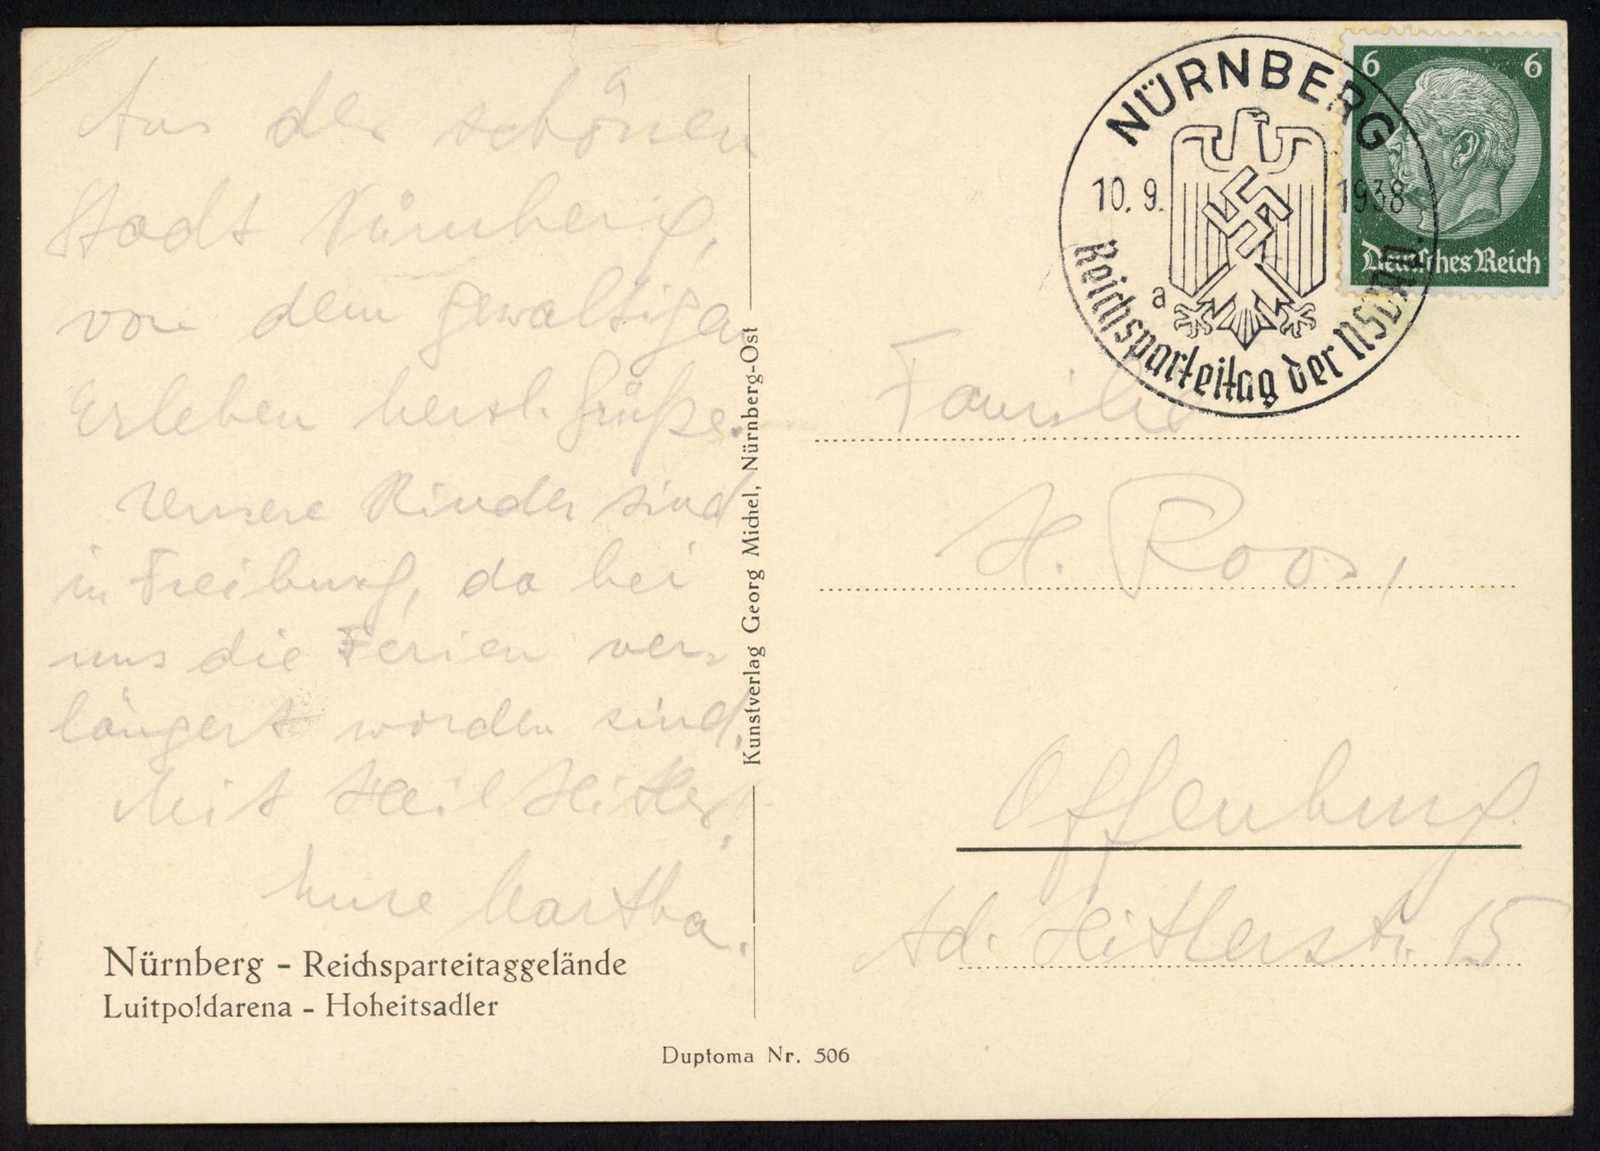 Aus der schönen
Stadt Nürnberg,
von dem gewaltigen
Erleben herzl. Grüße.
Unsere Kinder sind
in Freiburg, da bei
uns die Ferien ver-
längert worden sind.
Mit Heil Hitler,
Eure Martha.
Nürnberg - Reichsparteitaggelände
Luitpoldarena - Hoheitsadler
Duptoma Nr. 506
Kunstverlag Georg Michel, Nürnberg-Ost
NÜRNBERG
10. 9. 1938
a
Reichsparteitag der NSDAP.
6 6
Deutsches Reich
Familie
H. Roos,
Offenburg.
Ad. Hitlerstr. 15